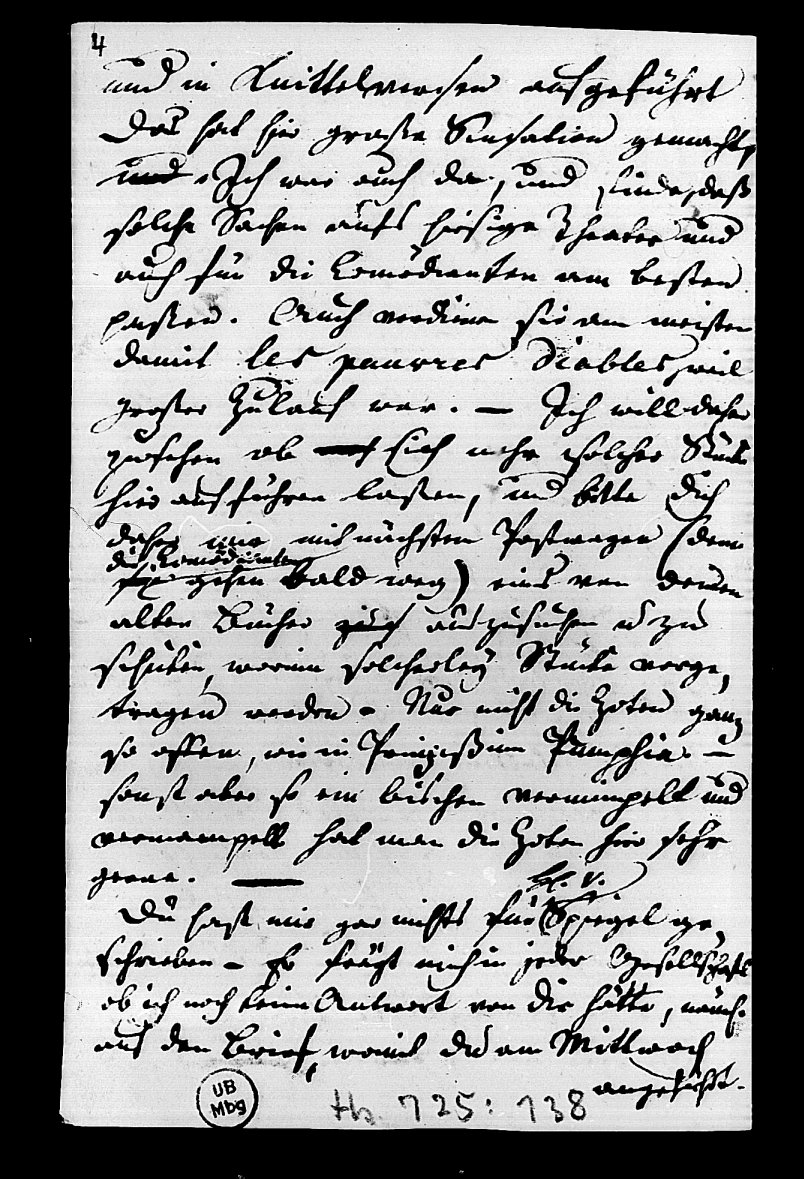 4
und in Knittelversen aufgeführt
Das hat hier große Sensation gemacht,
und Ich war auch da, und finde, daß
solche Sachen aufs hiesige Theater und
auch für die Komödianten am besten
paßen. Auch verdienen sie am meisten
damit les pauvres Diables, weil
großer Zulauf war. — Ich will daher
zusehen ob sich mehr solcher Stücke
hier aufführen laßen, und bitte Dich
daher mir mit nächsten Postwagen (denn
die Komödianten
gehen bald weg) eins von deinen
alten Bücher auszusuchen u zu
schicken, worinn solcherley Stücke vorge,
tragen werden - Nur nicht die Zoten ganz
so offen, wie in Prinzeßinn Pumphia —
sonst aber so ein bischen vermimpelt und
vermampelt hat man die Zoten hier sehr
gerne. —
H. v.
Du hast mir gar nichts für Spiegel ge,
schrieben - Er frägt mich in jeder Gesellschaft
ob ich noch keine Antwort von Dir hätte, nämch.
auf den Brief, womit du am Mittwoch
angeführt.
UB
Mbg
Hs. 725: 138